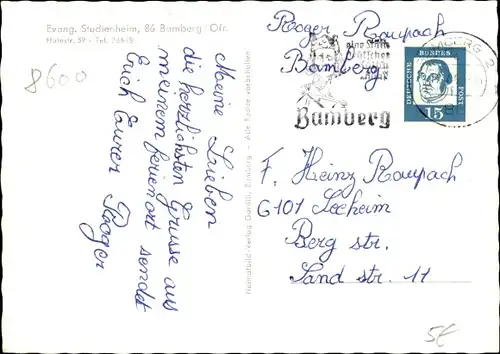 Evang. Studienheim, 86 Bamberg/Ofr.
Hainstr. 59 - Tel. 26815
8600
Meine Lieben
die herzlichsten Grüsse aus
meinem ferienort sendet
Euch Eurer Roger
Heimatbild-verlag Bamberg - Alle Rechte vorbehalten
Roger Raupach
Bamberg
eine Stätte
Bamberg
BAMBERG 2
DEUTSCHE BUNDESPOST
15
F. Heinz Raupach
6101 Seeheim
Berg str.
Sand str. 11
5€